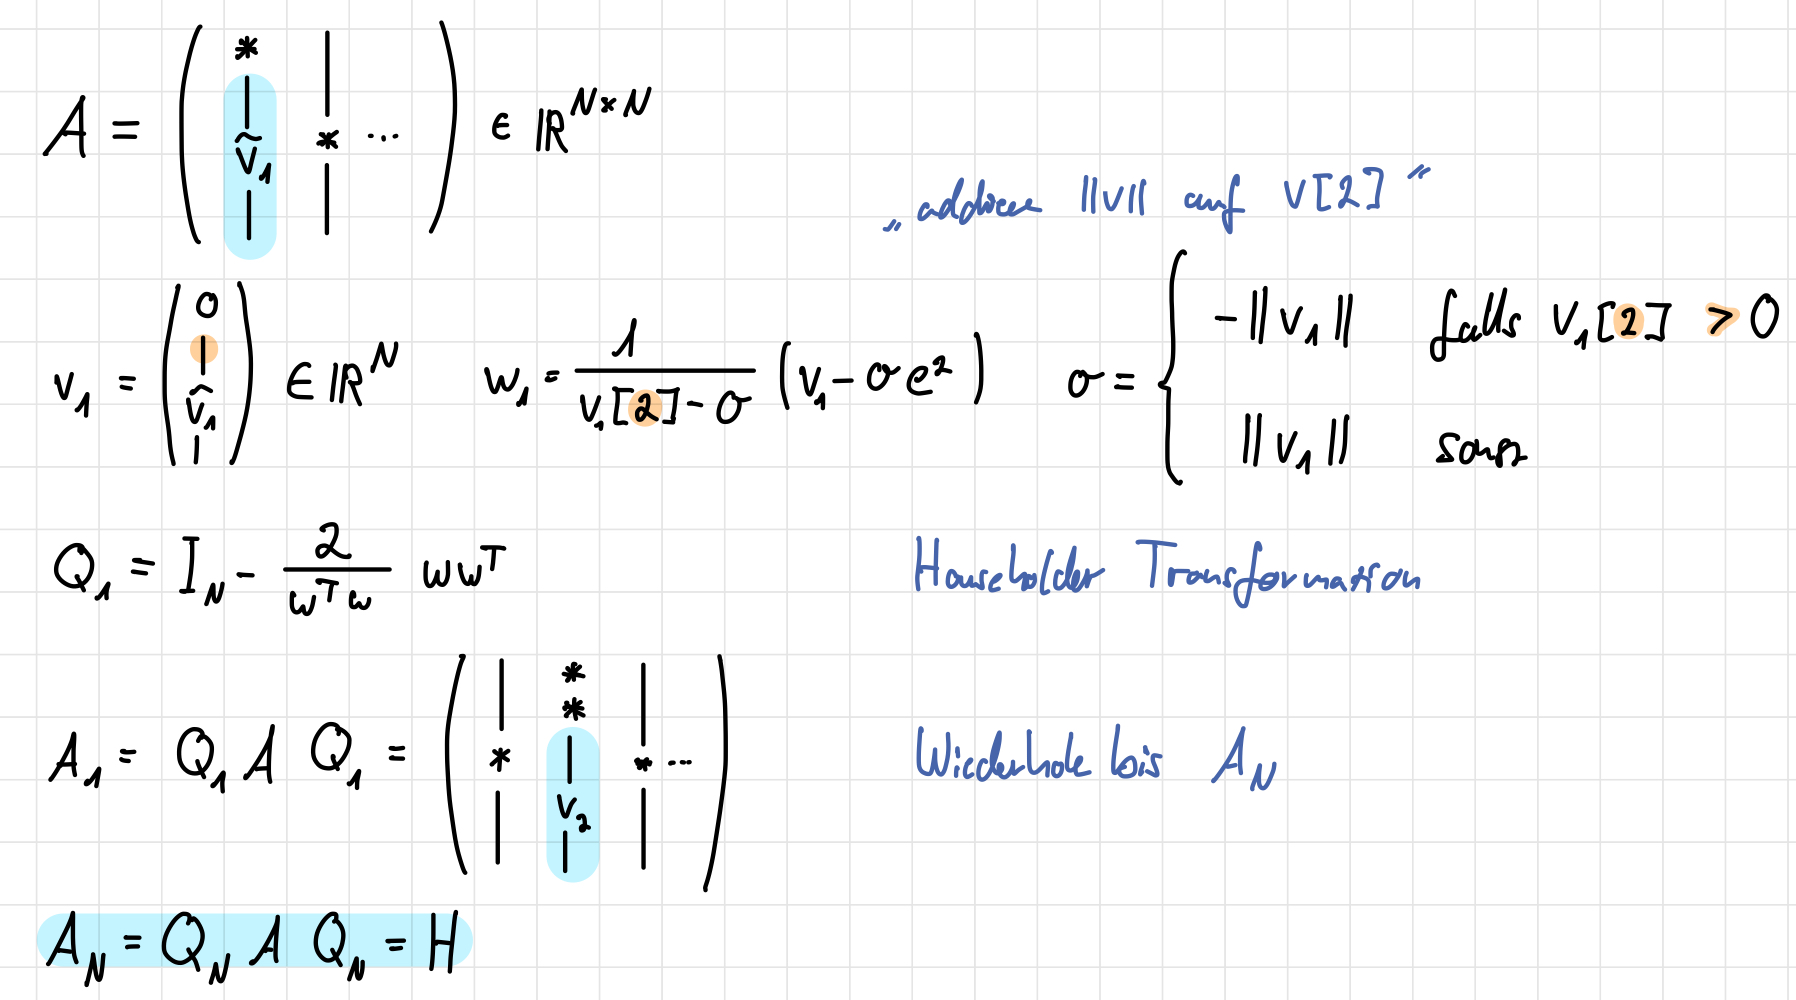 A = ( * | ṽ₁ | | * | ... ) ∈ ℝ^{N×N}
„addiere ||v|| auf v[2]“
v₁ = ( 0 | ṽ₁ | ) ∈ ℝ^N w₁ = 1 / (v₁[2] - σ) (v₁ - σe²) σ = { -||v₁|| falls v₁[2] > 0
||v₁|| sonst
Q₁ = I_N - 2 / (w^T w) w w^T Householder Transformation
A₁ = Q₁ A Q₁ = ( | * | * * | v₂ | | * | ... ) Wiederhole bis A_N
A_N = Q_N A Q_N = H